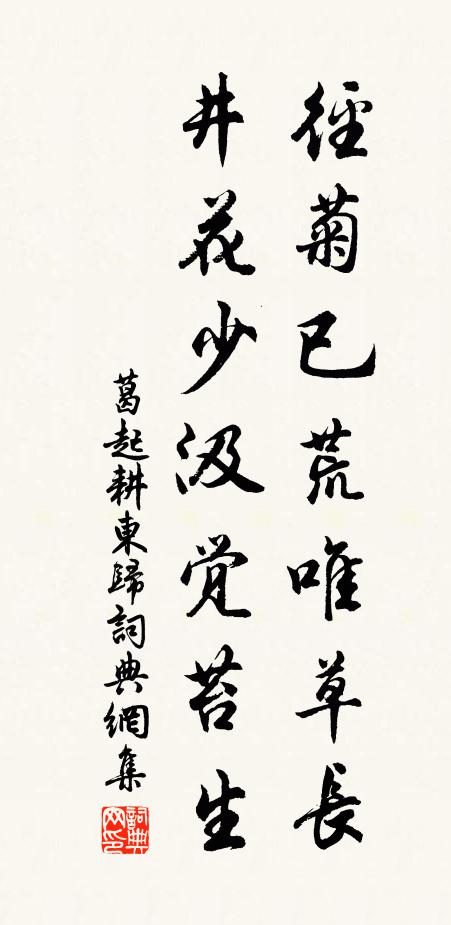 徑菊已荒唯草長
井花少汲覚苔生
葛起耕東歸詞典網集
詞典网印